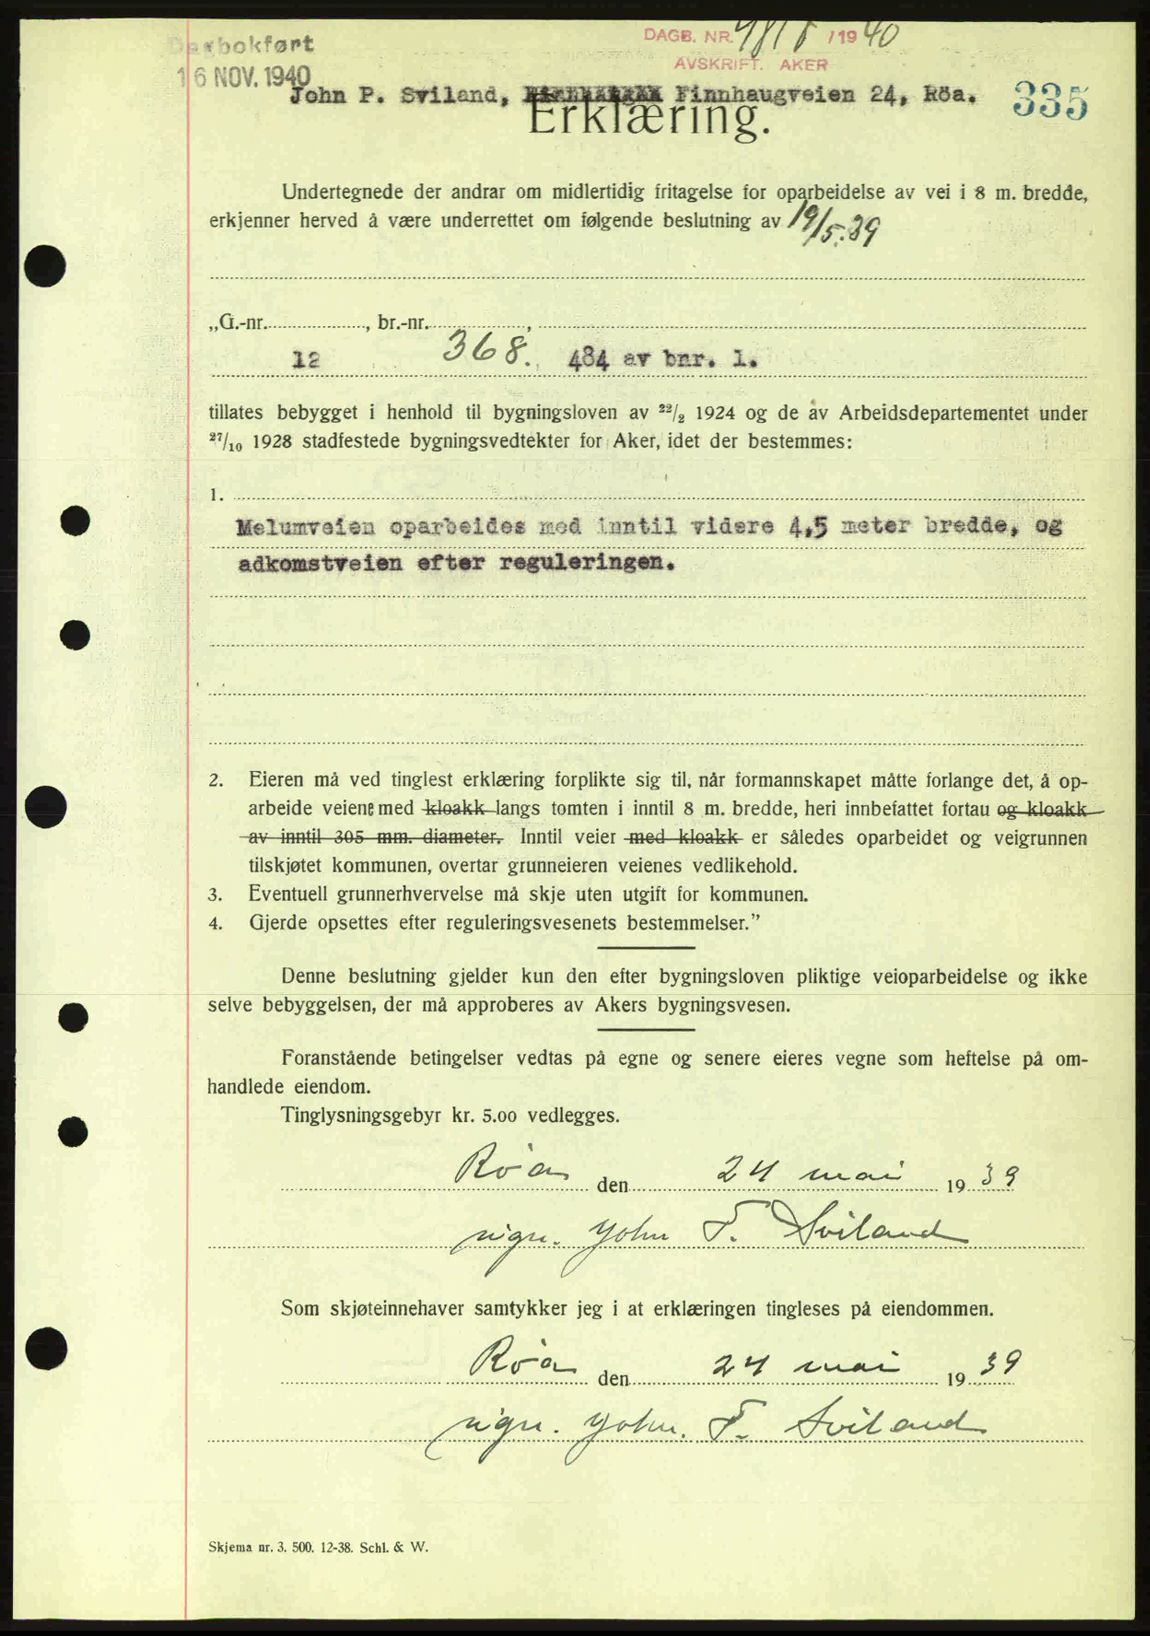 Dagbokført
16 NOV. 1940
DAGB. NR. 4818 / 1940
AVSKRIFT. AKER
335
John P. Sviland, Finnhaugveien 24, Röa.
Erklæring.
Undertegnede der andrar om midlertidig fritagelse for oparbeidelse av vei i 8 m. bredde,
erkjenner herved å være underrettet om følgende beslutning av 19/5.39
„G.-nr. , br.-nr. ,
12 368. 484 av bnr. 1.
tillates bebygget i henhold til bygningsloven av 22/2 1924 og de av Arbeidsdepartementet under
27/10 1928 stadfestede bygningsvedtekter for Aker, idet der bestemmes:
1.
Melumveien oparbeides med inntil videre 4,5 meter bredde, og
adkomstveien efter reguleringen.
2. Eieren må ved tinglest erklæring forplikte sig til, når formannskapet måtte forlange det, å op-
arbeide veiene med kloakk langs tomten i inntil 8 m. bredde, heri innbefattet fortau og kloakk
av inntil 305 mm. diameter. Inntil veier med kloakk er således oparbeidet og veigrunnen
tilskjøtet kommunen, overtar grunneieren veienes vedlikehold.
3. Eventuell grunnerhvervelse må skje uten utgift for kommunen.
4. Gjerde opsettes efter reguleringsvesenets bestemmelser.”
Denne beslutning gjelder kun den efter bygningsloven pliktige veioparbeidelse og ikke
selve bebyggelsen, der må approberes av Akers bygningsvesen.
Foranstående betingelser vedtas på egne og senere eieres vegne som heftelse på om-
handlede eiendom.
Tinglysningsgebyr kr. 5.00 vedlegges.
Røa den 24 mai 1939
sign. John F. Sviland
Som skjøteinnehaver samtykker jeg i at erklæringen tingleses på eiendommen.
Røa den 24 mai 1939
sign. John. F. Sviland
Skjema nr. 3. 500. 12-38. Schl. & W.